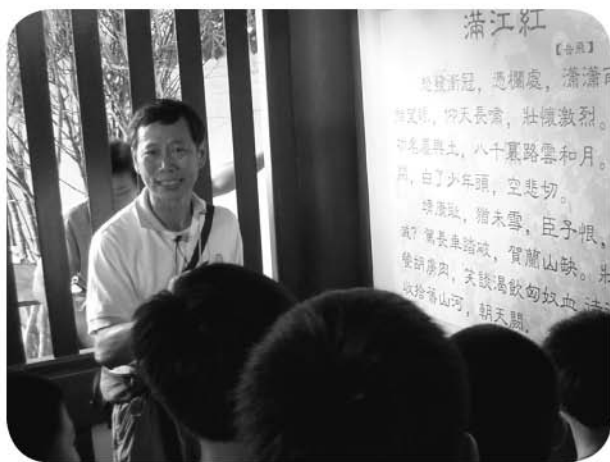 滿江紅
【岳飛】
怒發衝冠，憑欄處，瀟瀟雨
抬望眼，仰天長嘯，壯懷激烈。
功名塵與土，八千裏路雲和月。
，白了少年頭，空悲切。
靖康恥，猶未雪，臣子恨，
滅？駕長車踏破，賀蘭山缺。壯
胡虜肉，笑談渴飲匈奴血
收拾舊山河，朝天闕。